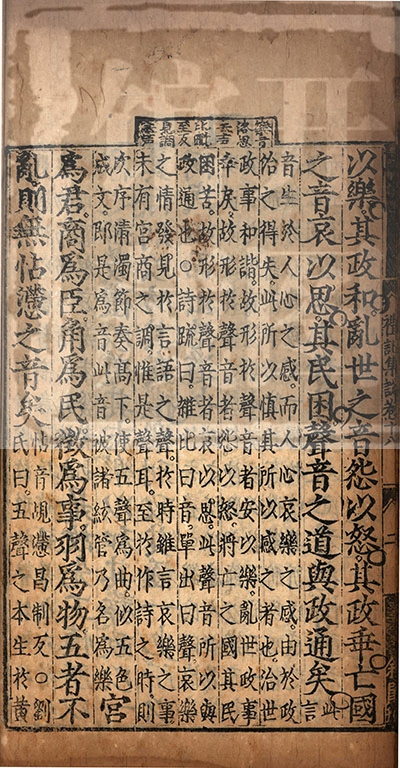 以樂其政和亂世之音怨以怒其政乖亡國
之音哀以思其民困聲音之道與政通矣此言
音生於人心之感而人心哀樂之感由於政
治之得失此所以慎其所以感之者也治世
政事和諧故形於聲音者安以樂亂世政事
乖戾故形於聲音者怨以怒將亡之國其民
困苦故形於聲音者哀以思此聲音所以與
政通也○詩疏曰雜比曰音單出曰聲哀樂
之情發見於言語之聲於時雖言哀樂之事
未有宮商之調惟是聲耳至於作詩之時則
次序清濁節奏高下使五聲為曲似五色
成文即是為音此音被諸絃管乃名為樂宮
為君商為臣角為民徵為事羽為物五者不
亂則無怗懘之音矣怗音覘懘昌制反○劉
氏曰五聲之本生於黃
樂音
洛思
比毗
至反
見調
禮記集說卷